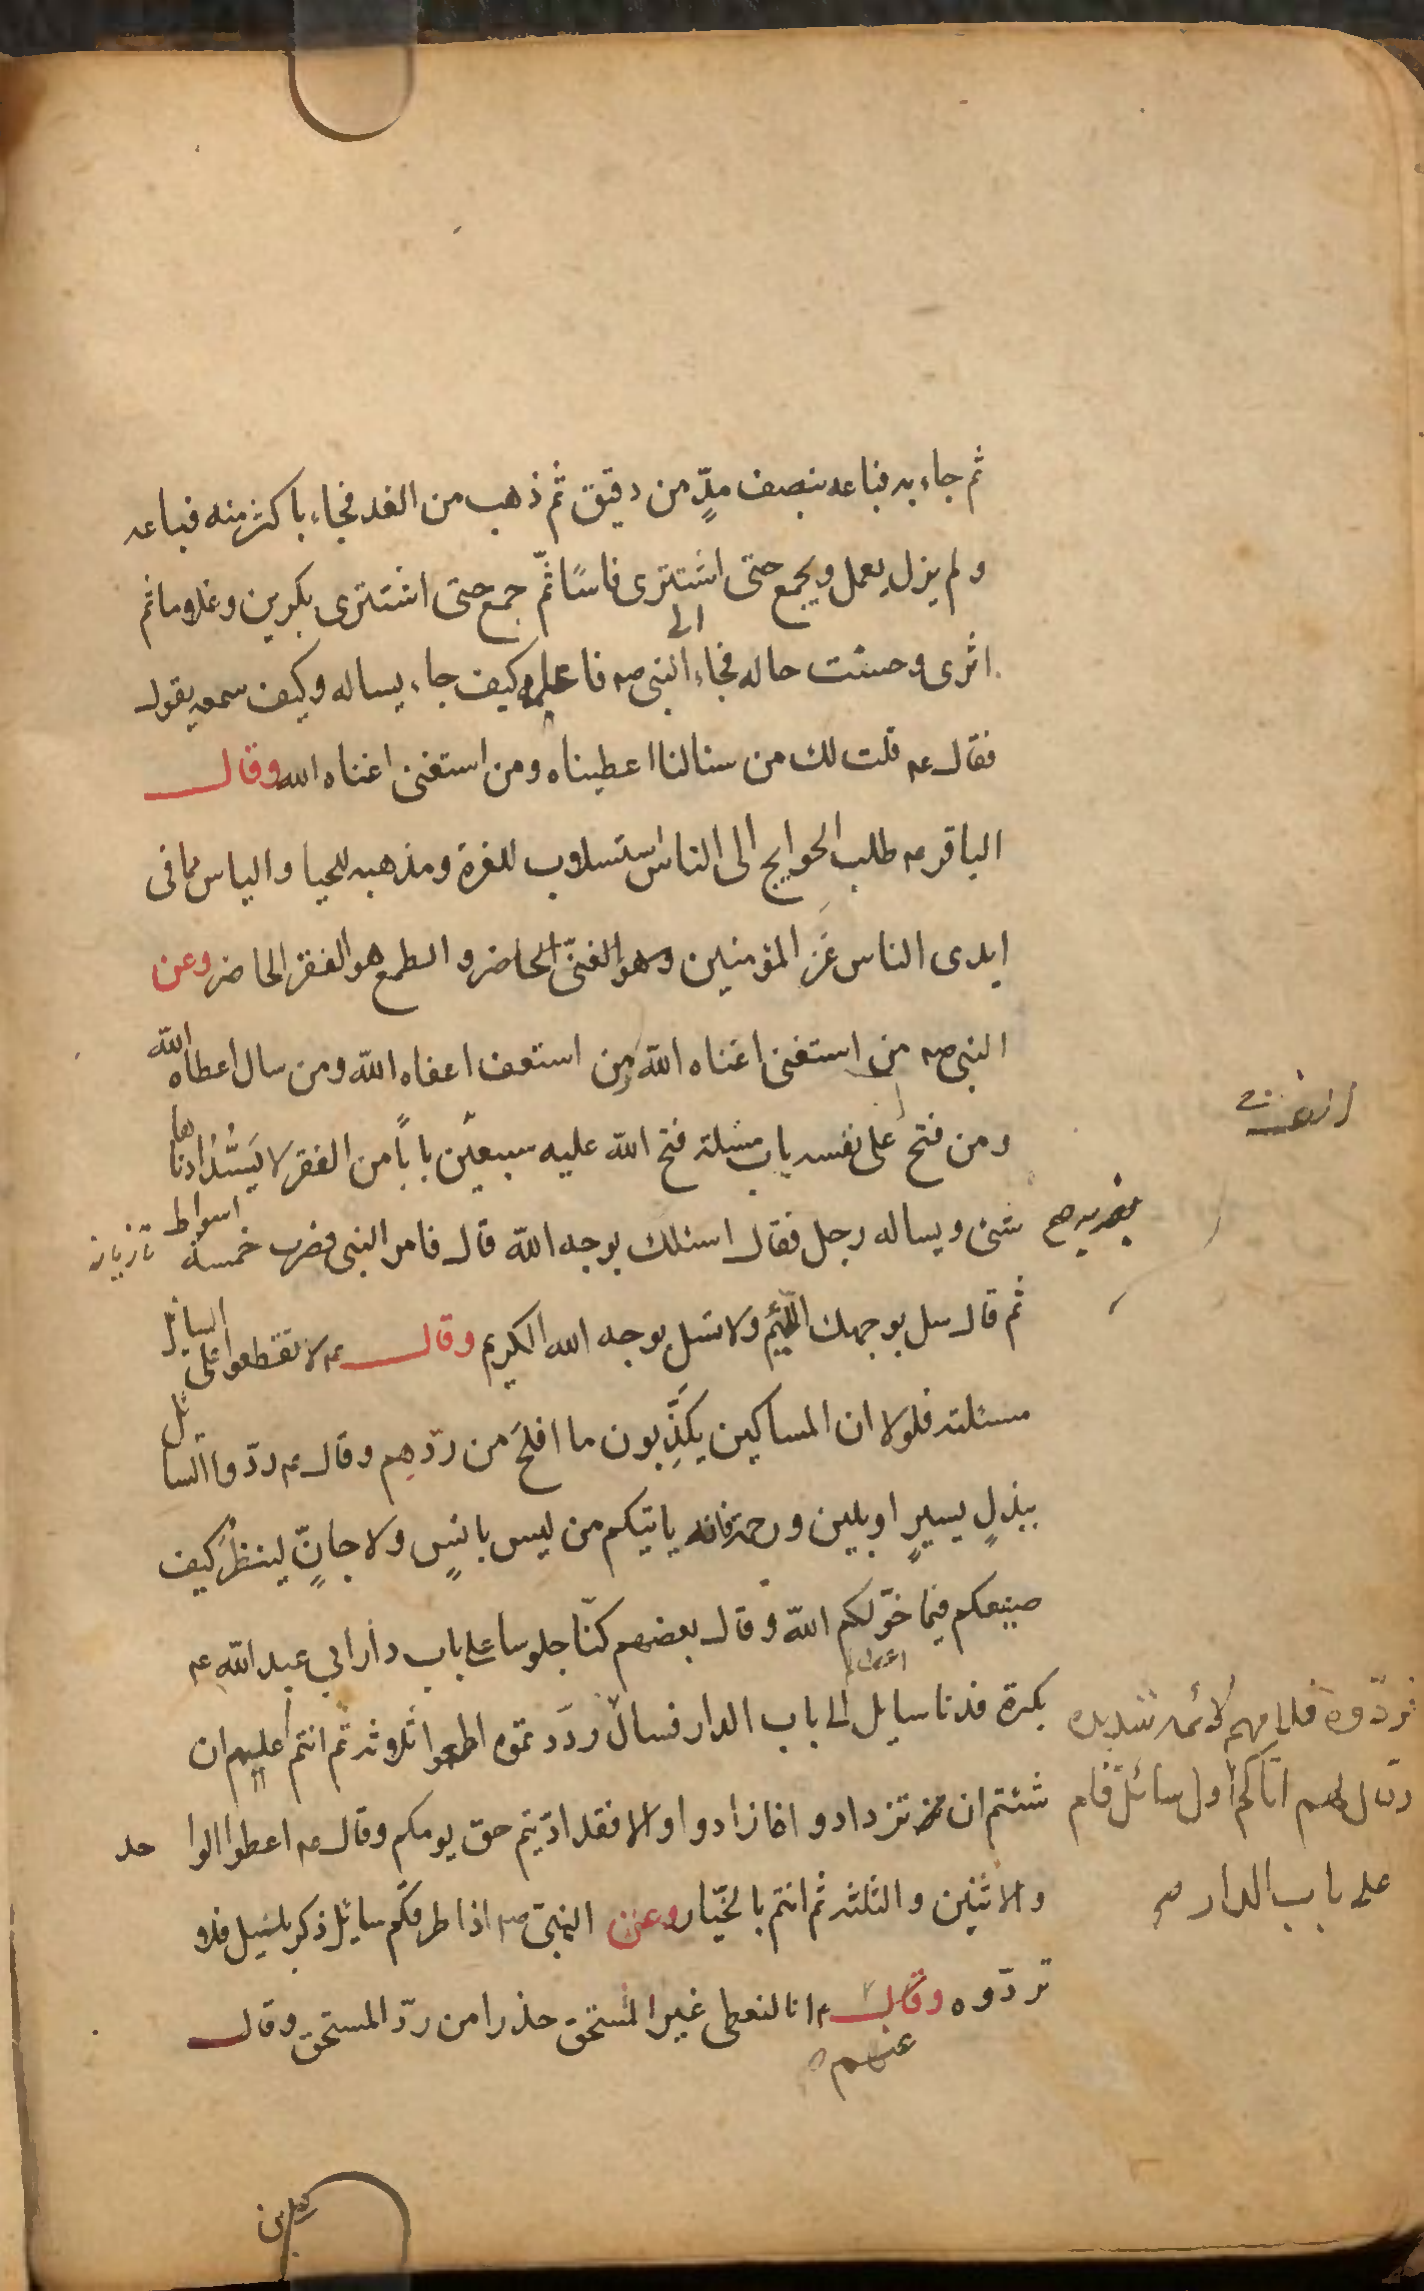 ثم جاء به فباعه بنصف مدٍّ من دقيق ثم ذهب من الغد فجاء باكثر منه فباعه
ولم يزل يعمل ويجمع حتى اشترى فاسًا ثمّ جمع حتى اشترى بكرين وغلاما ثم
الى
اثرى وحسنت حاله فجاء النبى صه فاعلمه كيف جاء يساله وكيف سمعه يقول
فقال عه قلت لك من سئالنا اعطيناه ومن استغنى اغناه الله وقال
الباقر عه طلب الحوايج الى الناس استسلاب للعزة ومذهبه للحيا والياس مما فى
ايدى الناس عَز المؤمنين وهو الغنىّ الحاضر والطمع هو الفقر الحاضر وعن
النبى صه من استغنى اغناه اللّه ومن استعف اعفاه اللّه ومن سال اعطاه اللّه
ومن فتح على نفسه باب مسئلة فتح اللّه عليه سبعين باباً من الفقر لا يَسُدُّ ادناها
شئ ويساله رجل فقال اسئلك بوجه اللّه قال فامر النبى فضرب خمسة اسواط
تازيانه
ثم قال سل بوجهك اللئيم ولا تسئل بوجه الله الكريم وقال عه لا تقطعوا على السايل
مسئلته فلولا ان المساكين يكذِّبون ما افلحَ من ردّهم وقال عه ردّوا السائل
ببذلٍ يسيرٍ او بلين ورحمة فانه ياتيكم من ليس بانسٍ ولا جانٍّ لينظرُ كيف
صنيعكم فيما خوّلكم اللّه وقال بعضهم كنّا جلوسا على باب دار ابى عبد اللّه عه
بكرة فدنا سايل الى باب الدار فسال فردّوه اطعموا ثلاثة ثم انتم اعليهم ان
شئتم ان تزدادو افازادوا والا فقد ادّيتم حق يومكم وقال عه اعطوا الوا
حد
والاثنين والثلثه ثم انتم بالخيار وعن النبىّ صه اذا طرقكم سائل ذكر بليل فلا
تردّوه وقال عه انا لنعطى غير المستحق حذرا من ردّ المستحق وقال
فردّوه فلامهم لائمة شديدة
وقال لهم اتاكم اول سائل قام
على باب الدار